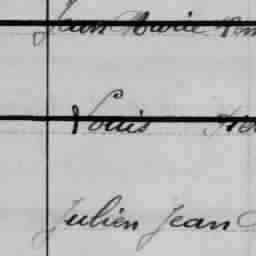 Jean Marie
Louis
Julien Jean